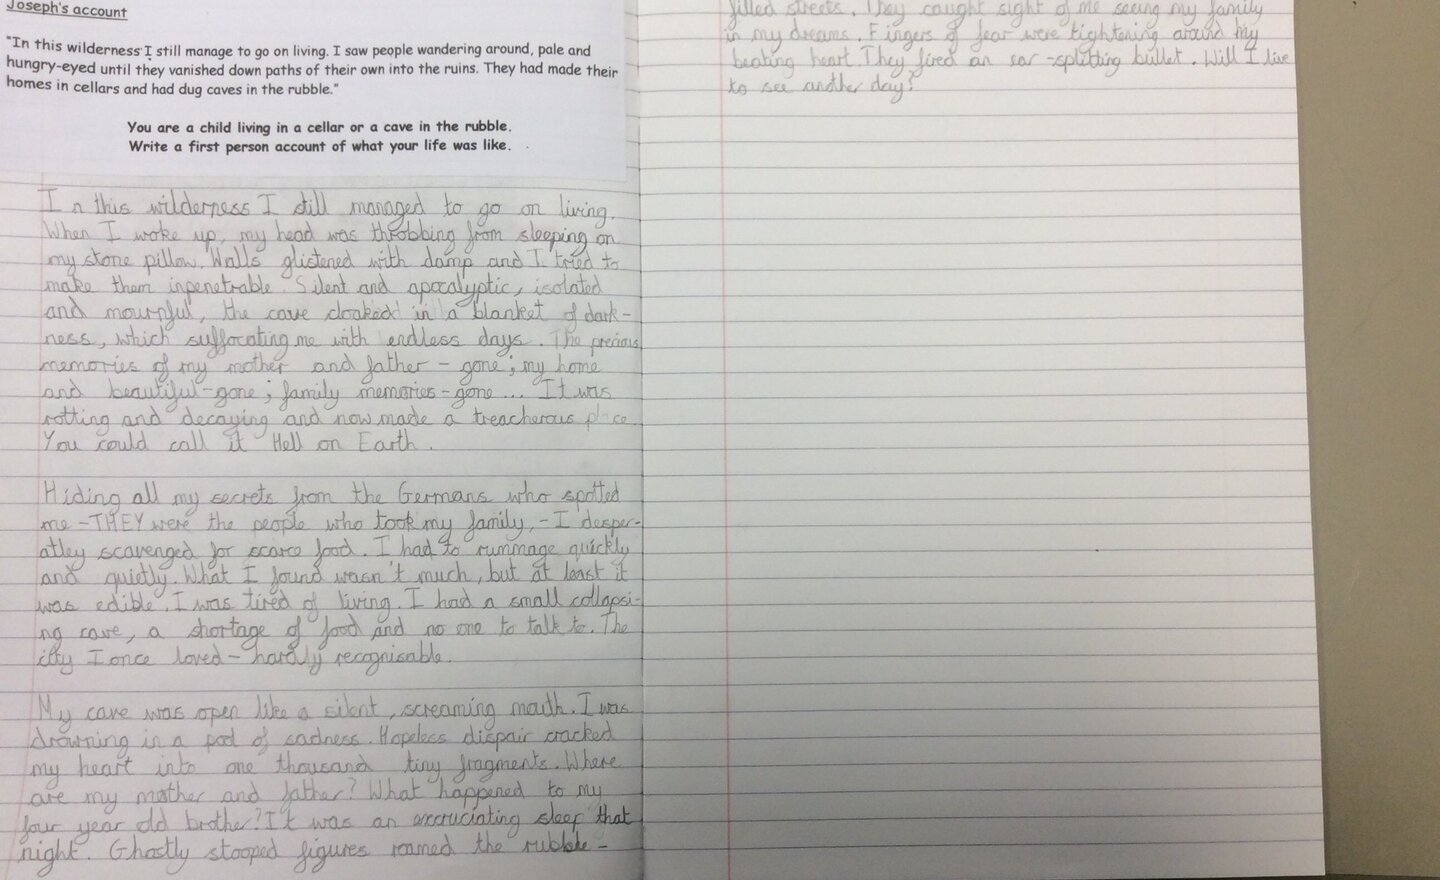 Joseph's account
"In this wilderness I still manage to go on living. I saw people wandering around, pale and
hungry-eyed until they vanished down paths of their own into the ruins. They had made their
homes in cellars and had dug caves in the rubble."
You are a child living in a cellar or a cave in the rubble.
Write a first person account of what your life was like.
In this wilderness I still managed to go on living.
When I woke up, my head was throbbing from sleeping on
my stone pillow. Walls glistened with damp and I tried to
make them inpenetrable. Silent and apocalyptic, isolated
and mournful, the cave cloaked in a blanket of dark-
ness, which suffocating me with endless days. The precious
memories of my mother and father - gone; my home
and beautiful - gone; family memories - gone... It was
rotting and decaying and now made a treacherous place.
You could call it Hell on Earth.
Hiding all my secrets from the Germans who spotted
me - THEY were the people who took my family, - I desper-
atley scavenged for scarce food. I had to rummage quickly
and quietly. What I found wasn't much, but at least it
was edible. I was tired of living. I had a small collapsi-
ng cave, a shortage of food and no one to talk to. The
city I once loved - hardly recognisable.
My cave was open like a silent, screaming mouth. I was
drowning in a pool of sadness. Hopeless dispair cracked
my heart into one thousand tiny fragments. Where
are my mother and father? What happened to my
four year old brother? It was an excruciating sleep that
night. Ghostly stooped figures roamed the rubble-
filled streets. They caught sight of me seeing my family
in my dreams. Fingers of fear were tightening around my
beating heart. They fired an ear-splitting bullet. Will I live
to see another day?